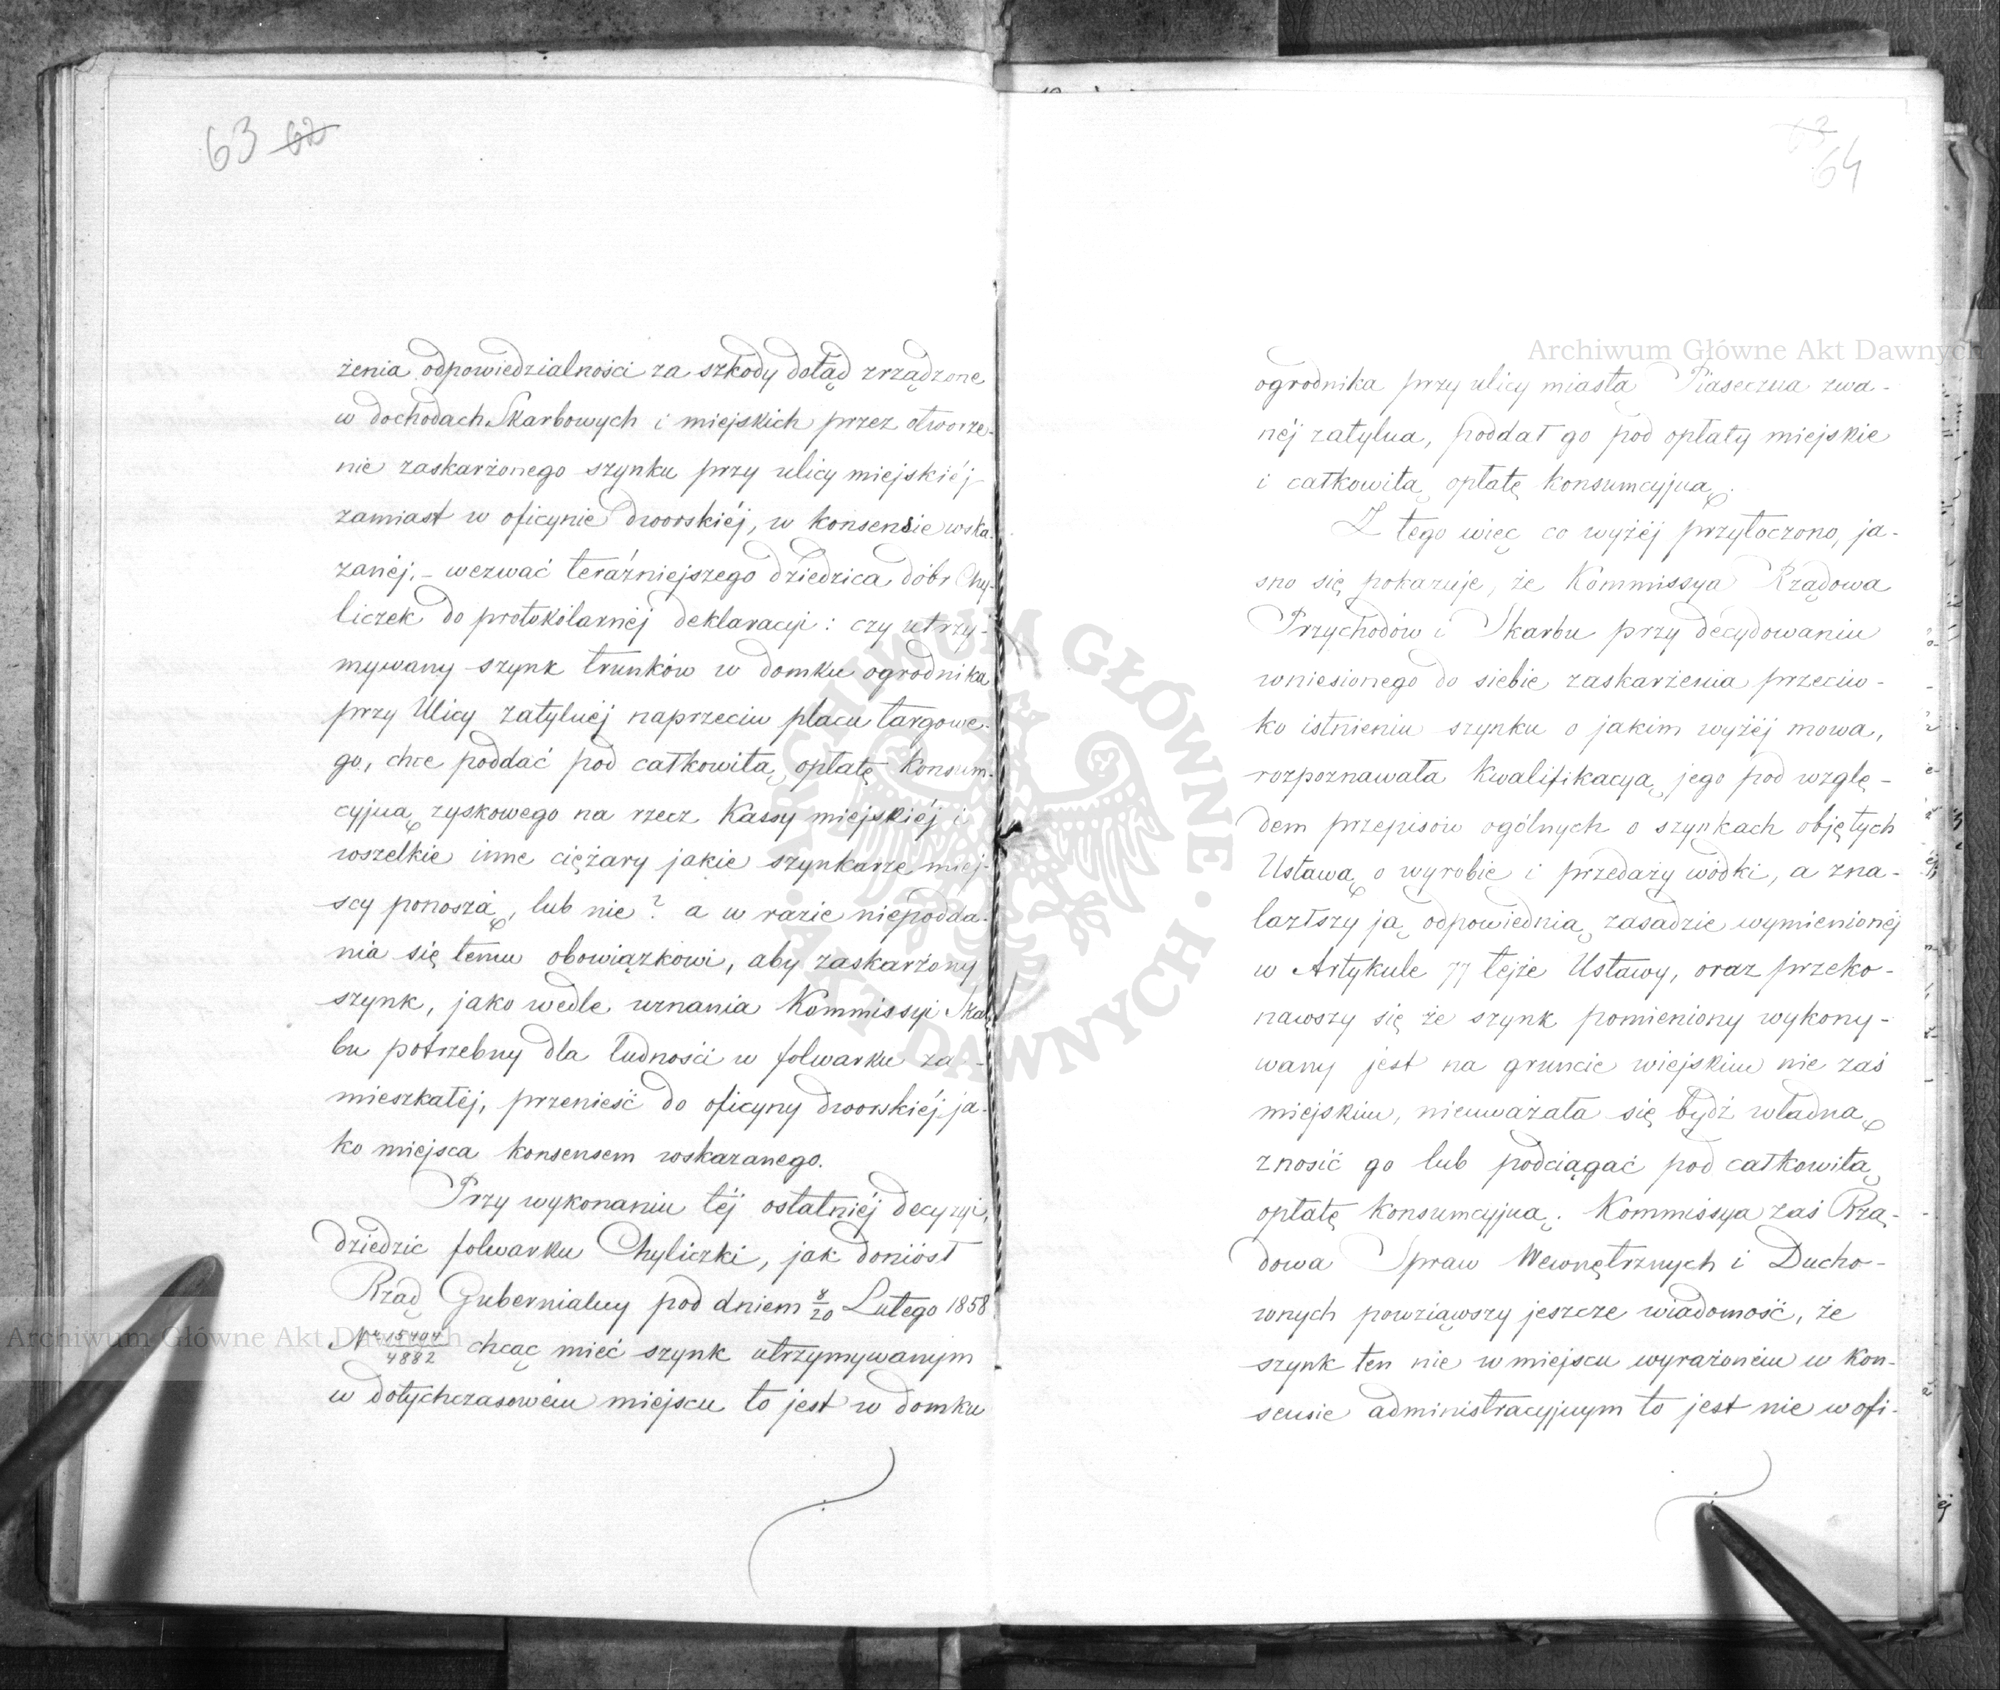 63 62
żenia odpowiedzialności za szkody dotąd zrządzone
w dochodach Skarbowych i miejskich przez otworze-
nie zaskarżonego szynku przy ulicy miejskiéj
zamiast w oficynie dworskiéj, w konsensie wska-
zanéj. – wezwać teráźniejszego dziedzica dóbr Chy-
liczek do protokólarnéj deklaracyi: czy utrzy-
mywany szynk trunków w domku ogrodnika
przy Ulicy zatylnéj naprzeciw placu targowe-
go, chce poddać pod całkowitą opłatę konsum-
cyjną zyskowego na rzecz Kassy miejskiéj i
wszelkie inne ciężary jakie szynkarze miej-
scy ponoszą, lub nie? a w razie niepodda-
nia się temu obowiązkowi, aby zaskarżony
szynk, jako wedle uznania Kommissyi Skar-
bu potrzebny dla ludności w folwarku za-
mieszkałéj, przenieść do oficyny dworskiéj ja-
ko miejsca konsensem wskazanego.
Przy wykonaniu téj ostatniéj decyzyi,
dziedzic folwarku Chyliczki, jak doniósł
Rząd Gubernialny pod dniem 8/20 Lutego 1858
Nr 15404/4882 chcąc mieć szynk utrzymywanym
w dotychczasowém miejscu to jest w domku
64
ogrodnika przy ulicy miasta Piaseczna zwa-
néj zatylna, poddał go pod opłaty miejskie
i całkowitą opłatę konsumcyjną.
Z tego więc co wyżéj przytoczono, ja-
sno się pokazuje, że Kommissya Rządowa
Przychodów i Skarbu przy decydowaniu
wniesionego do siebie zaskarżenia przeciw-
ko istnieniu szynku o jakim wyżéj mowa,
rozpoznawała kwalifikacyą jego pod wzglę-
dem przepisów ogólnych o szynkach objętych
Ustawą o wyrobie i przedaży wódki, a zna-
lazłszy ją odpowiednią zasadzie wymienionéj
w Artykule 77 tejże Ustawy, oraz przeko-
nawszy się że szynk pomieniony wykony-
wany jest na gruncie wiejskim nie zaś
miejskim, nieuważała się bydź władną
znosić go lub podciągać pod całkowitą
opłatę konsumcyjną. Kommissya zaś Rzą-
dowa Spraw Wewnętrznych i Ducho-
wnych powziąwszy jeszcze wiadomość, że
szynk ten nie w miejscu wyrażoném w kon-
sensie administracyjnym to jest nie w ofi-
Archiwum Główne Akt Dawnych
Archiwum Główne Akt Dawnych
ARCHIWUM GŁÓWNE · AKT DAWNYCH ·